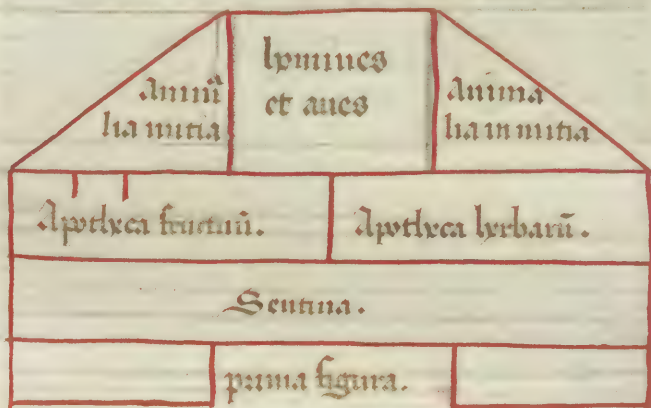 Animā
lia mitia
homines
et aues
Anima
lia inmitia
Apotheca fructuū.
Apotheca herbarū.
Sentina.
prima figura.